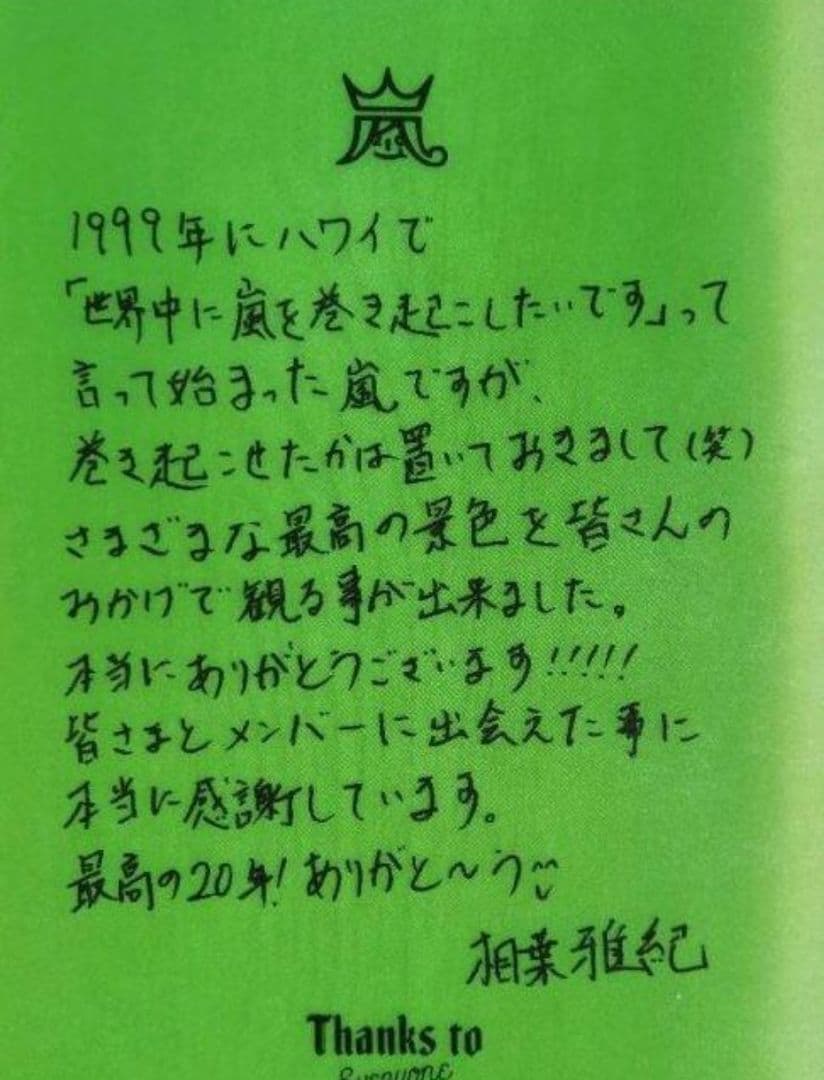 嵐
1999年にハワイで
「世界中に嵐を巻き起こしたいです」って
言って始まった嵐ですが、
巻き起こせたかは置いておきまして(笑)
さまざまな最高の景色を皆さんの
おかげで観る事が出来ました。
本当にありがとうございます!!!!!
皆さまとメンバーに出会えた事に
本当に感謝しています。
最高の20年!ありがと〜う
相葉雅紀
Thanks to
Everyone